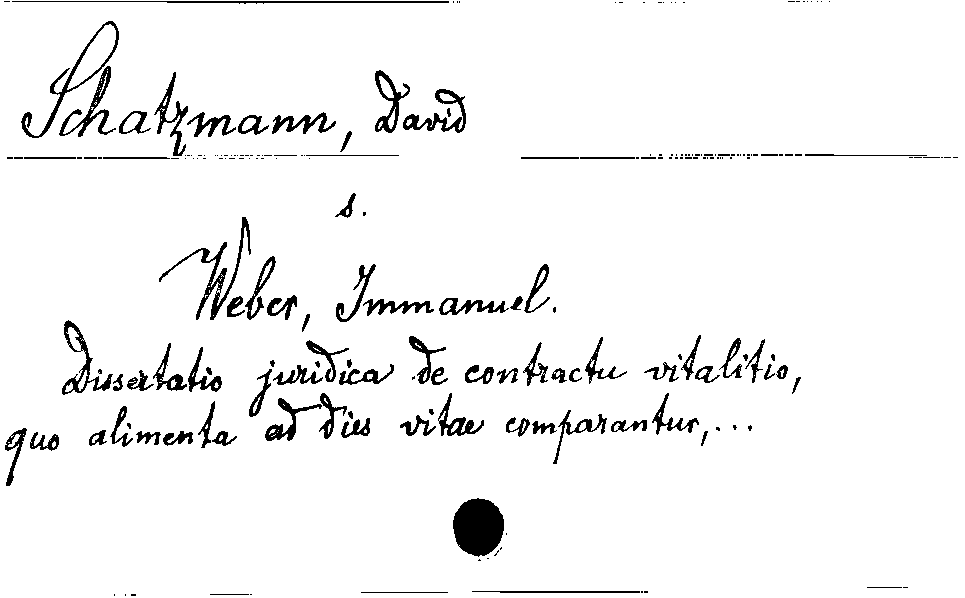 Schatzmann, David
s.
Weber, Immanuel.
Dissertatio juridica de contractu vitalitio,
quo alimenta ad dies vitae comparantur,...